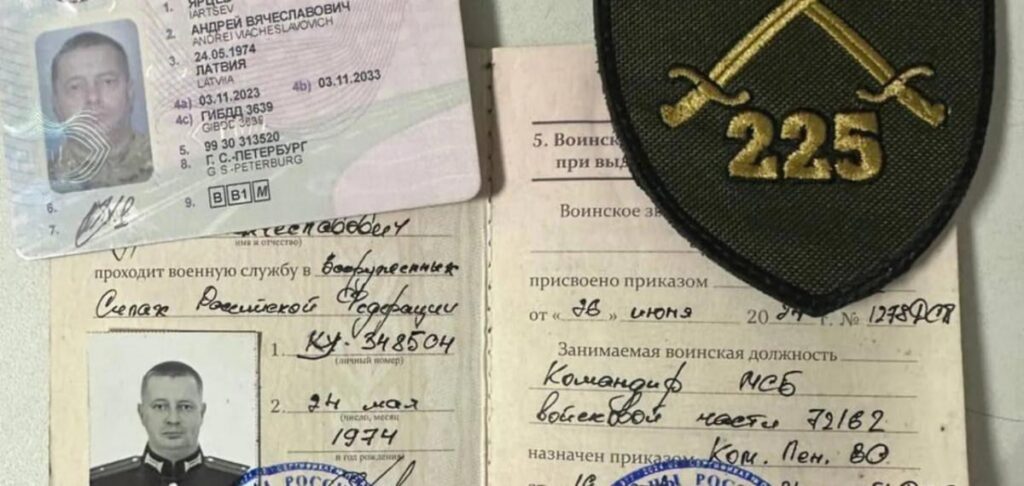 1. ЯРЦЕВ
IARTSEV
2. АНДРЕЙ ВЯЧЕСЛАВОВИЧ
ANDREI VIACHESLAVOVICH
3. 24.05.1974
ЛАТВИЯ
LATVIIA
4a) 03.11.2023 4b) 03.11.2033
4c) ГИБДД 3639
GIBDD 3639
5. 99 30 313520
8. Г. С.-ПЕТЕРБУРГ
G S-PETERBURG
6.
7.
9. B B1 M
имя и отчество)
проходит военную службу в Вооруженных
Силах Российской Федерации
1. КУ-348504
(личный номер)
2. 24 мая
(число, месяц
1974
и год рождения)
225
5. Воинск
при выд
Воинское зв
присвоено приказом
от « 26 » июня 20 г. № 1278ДСП
Занимаемая воинская должность
Командир МСБ
войсковой части 72162
назначен приказом Ком. Лен. ВО